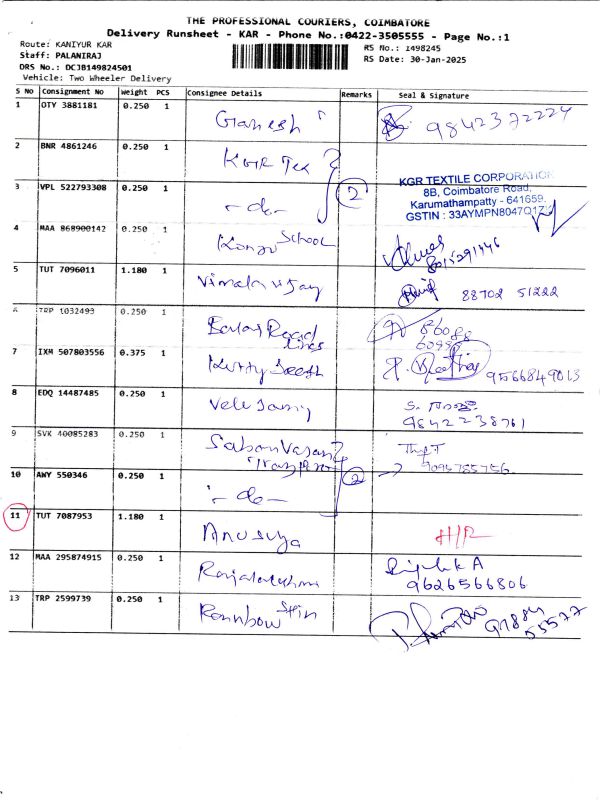 THE PROFESSIONAL COURIERS, COIMBATORE
Delivery Runsheet - KAR - Phone No.:0422-3505555 - Page No.:1
Route: KANIYUR KAR
Staff: PALANIRAJ
DRS No.: DCJB149824501
Vehicle: Two Wheeler Delivery
RS No.: 1498245
RS Date: 30-Jan-2025
S No Consignment No Weight PCS Consignee Details Remarks Seal & Signature
1 OTY 3881181 0.250 1 Ganesh 9842372224
2 BNR 4861246 0.250 1 KGR Tex
KGR TEXTILE CORPORATION
8B, Coimbatore Road,
Karumathampatty - 641659.
GSTIN : 33AYMPN8047Q1Z
3 VPL 522793308 0.250 1 -do- 2
4 MAA 868900142 0.250 1 School
5 TUT 7096011 1.180 1 Vimala vijay 88702 51222
6 TRP 1032493 0.250 1 Road Lines 86088
7 IXM 507803556 0.375 1 9566849013
8 EDQ 14487485 0.250 1 Velusamy 9842238761
9 SVK 40085283 0.250 1 9095785756
10 AWY 550346 0.250 1 -do- 2
11 TUT 7087953 1.180 1 Anusuya H/R
12 MAA 295874915 0.250 1 Rajalakshmi 9626566806
13 TRP 2599739 0.250 1 Rainbow 97884 55577